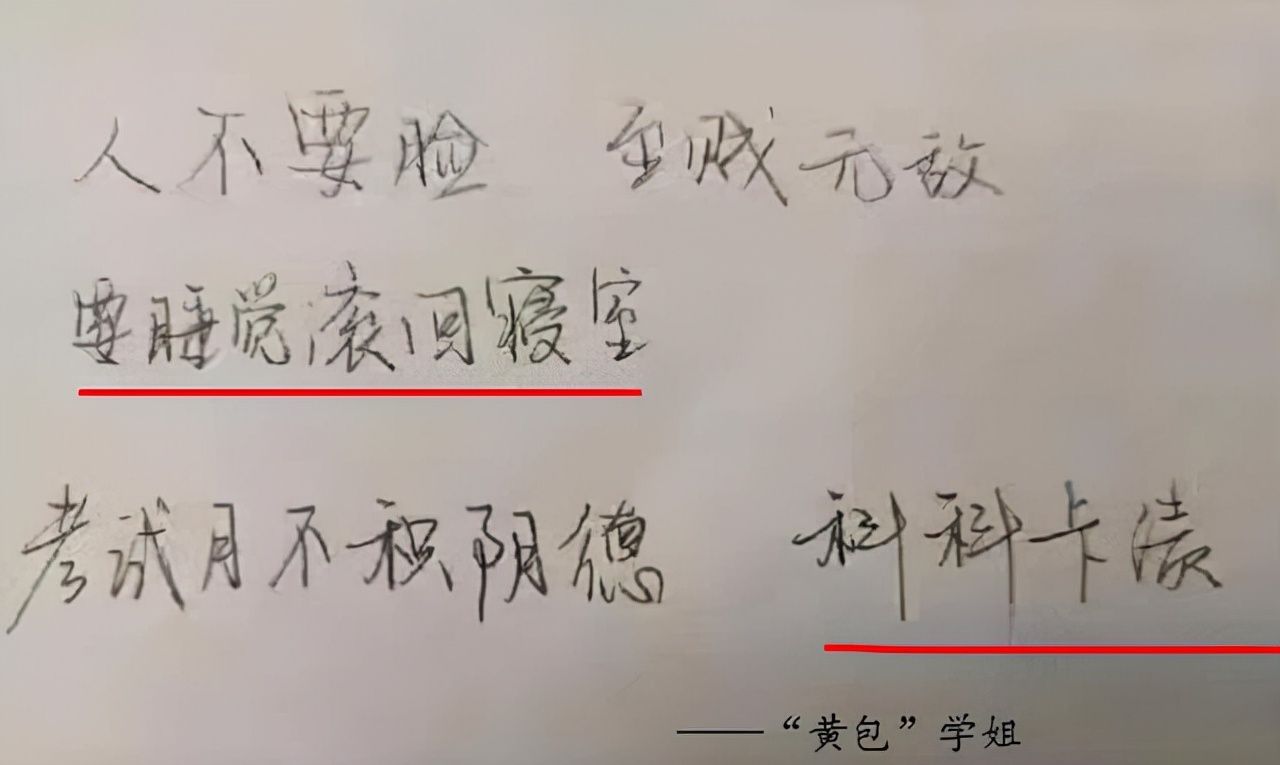 人不要脸 至贱无敌
要睡觉滚回寝室
考试月不积阴德 科科卡渍
——“黄包”学姐